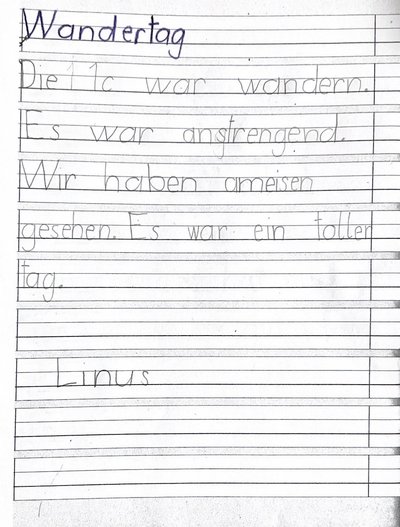 Wandertag
Die 1 1c war wandern.
Es war anstrengend.
Wir haben ameisen
gesehen. Es war ein toller
tag.
Linus